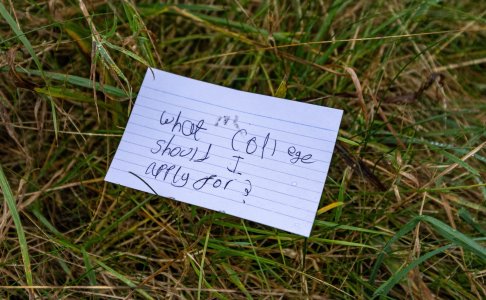 what College
should I
apply for?